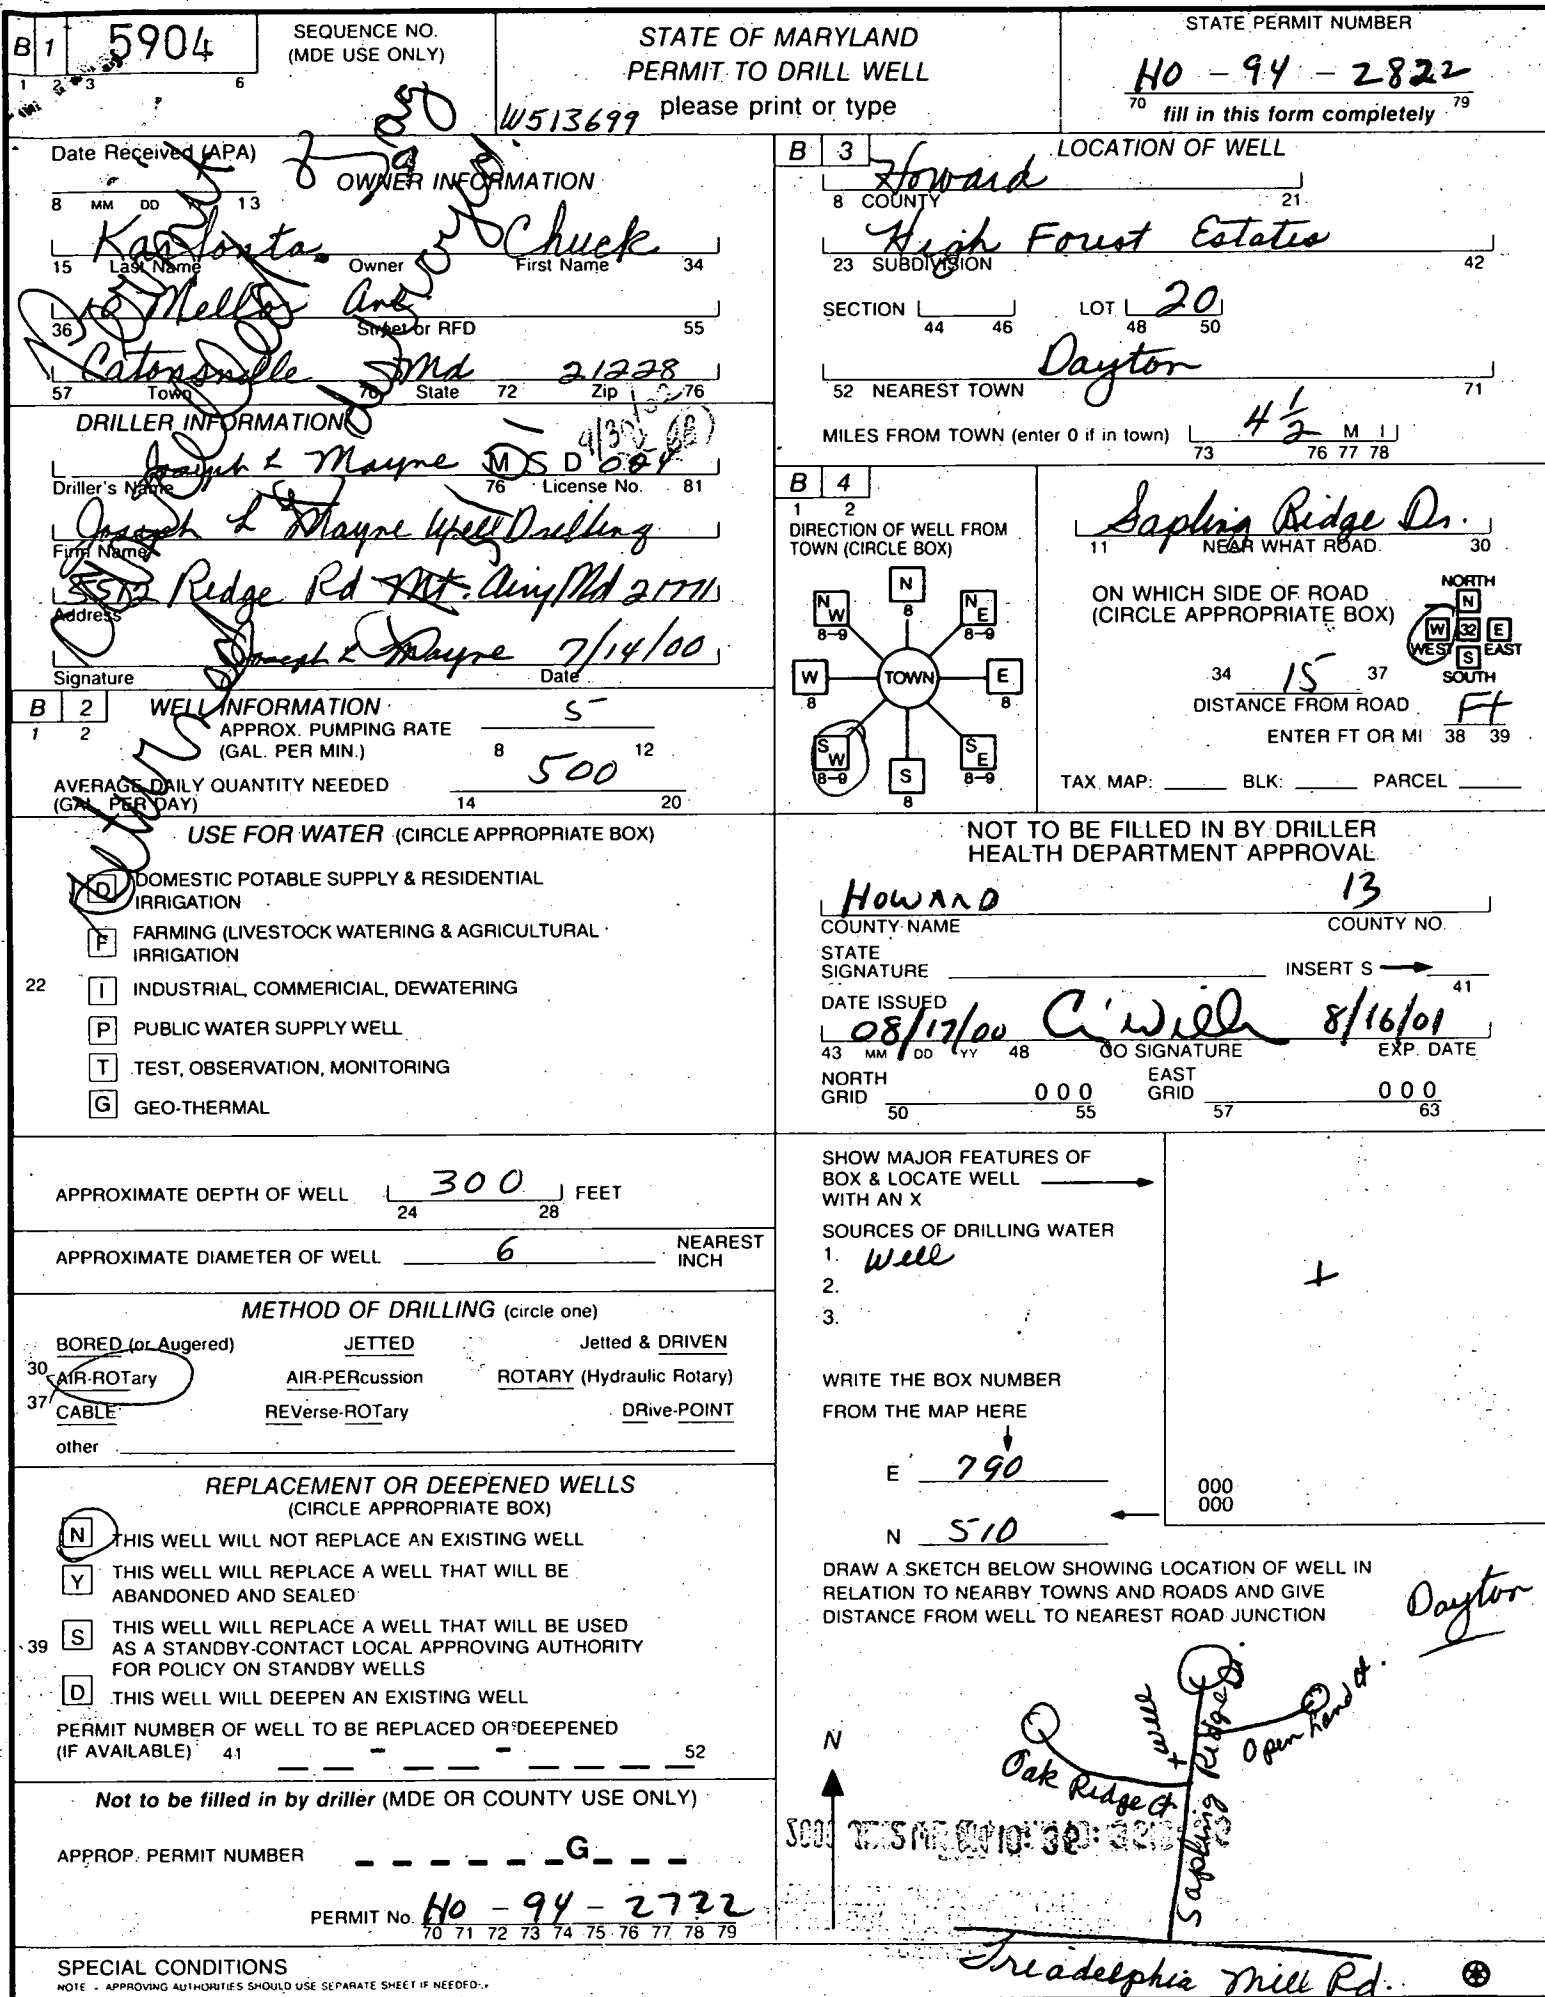 B 1 5904
1 2 3 6
SEQUENCE NO.
(MDE USE ONLY)
STATE OF MARYLAND
PERMIT TO DRILL WELL
please print or type
W513699
STATE PERMIT NUMBER
HO - 94 - 2822
70 79
fill in this form completely
Date Received (APA)
8 MM DD 13
OWNER INFORMATION
Chuck
15 Last Name Owner First Name 34
Mellor Ave
36 Street or RFD 55
Catonsville Md 21228
57 Town 70 State 72 Zip 76
DRILLER INFORMATION
Joseph L Mayne M S D 024
Driller's Name 76 License No. 81
Joseph L Mayne Well Drilling
Firm Name
5512 Ridge Rd Mt. Airy Md 21771
Address
Joseph L Mayne 7/14/00
Signature Date
B 2 WELL INFORMATION
1 2
APPROX. PUMPING RATE 5
(GAL. PER MIN.) 8 12
AVERAGE DAILY QUANTITY NEEDED 500
(GAL. PER DAY) 14 20
USE FOR WATER (CIRCLE APPROPRIATE BOX)
D DOMESTIC POTABLE SUPPLY & RESIDENTIAL
IRRIGATION
F FARMING (LIVESTOCK WATERING & AGRICULTURAL
IRRIGATION
22 I INDUSTRIAL, COMMERICIAL, DEWATERING
P PUBLIC WATER SUPPLY WELL
T TEST, OBSERVATION, MONITORING
G GEO-THERMAL
APPROXIMATE DEPTH OF WELL 300 FEET
24 28
APPROXIMATE DIAMETER OF WELL 6 NEAREST
INCH
METHOD OF DRILLING (circle one)
BORED (or Augered) JETTED Jetted & DRIVEN
30 AIR-ROTary AIR-PERcussion ROTARY (Hydraulic Rotary)
37 CABLE REVerse-ROTary DRive-POINT
other
REPLACEMENT OR DEEPENED WELLS
(CIRCLE APPROPRIATE BOX)
N THIS WELL WILL NOT REPLACE AN EXISTING WELL
Y THIS WELL WILL REPLACE A WELL THAT WILL BE
ABANDONED AND SEALED
39 S THIS WELL WILL REPLACE A WELL THAT WILL BE USED
AS A STANDBY-CONTACT LOCAL APPROVING AUTHORITY
FOR POLICY ON STANDBY WELLS
D THIS WELL WILL DEEPEN AN EXISTING WELL
PERMIT NUMBER OF WELL TO BE REPLACED OR DEEPENED
(IF AVAILABLE) 41 - - 52
Not to be filled in by driller (MDE OR COUNTY USE ONLY)
APPROP. PERMIT NUMBER G
PERMIT No. HO - 94 - 2722
70 71 72 73 74 75 76 77 78 79
SPECIAL CONDITIONS
NOTE - APPROVING AUTHORITIES SHOULD USE SEPARATE SHEET IF NEEDED
B 3 LOCATION OF WELL
Howard
8 COUNTY 21
High Forest Estates
23 SUBDIVISION 42
SECTION 44 46 LOT 20 48 50
Dayton
52 NEAREST TOWN 71
MILES FROM TOWN (enter 0 if in town) 4 1/2 M I
73 76 77 78
B 4
1 2
DIRECTION OF WELL FROM
TOWN (CIRCLE BOX)
N 8
NW 8-9 NE 8-9
W 8 TOWN E 8
SW 8-9 SE 8-9
S 8
Sapling Ridge Dr.
11 NEAR WHAT ROAD 30
ON WHICH SIDE OF ROAD
(CIRCLE APPROPRIATE BOX)
NORTH
N
W 32 E
WEST S EAST
SOUTH
34 15 37
DISTANCE FROM ROAD Ft
ENTER FT OR MI 38 39
TAX MAP: BLK: PARCEL
NOT TO BE FILLED IN BY DRILLER
HEALTH DEPARTMENT APPROVAL
HOWARD 13
COUNTY NAME COUNTY NO.
STATE
SIGNATURE INSERT S
41
DATE ISSUED
08/17/00 8/16/01
43 MM DD YY 48 CO SIGNATURE EXP. DATE
NORTH
GRID 000
50 55
EAST
GRID 000
57 63
SHOW MAJOR FEATURES OF
BOX & LOCATE WELL
WITH AN X
SOURCES OF DRILLING WATER
1. Well
2.
3.
WRITE THE BOX NUMBER
FROM THE MAP HERE
E 790
N 510
000
000
DRAW A SKETCH BELOW SHOWING LOCATION OF WELL IN
RELATION TO NEARBY TOWNS AND ROADS AND GIVE
DISTANCE FROM WELL TO NEAREST ROAD JUNCTION
Dayton
N
Oak Ridge Ct
+ well
Sapling Ridge Dr.
Open Hand Ct.
Triadelphia Mill Rd.